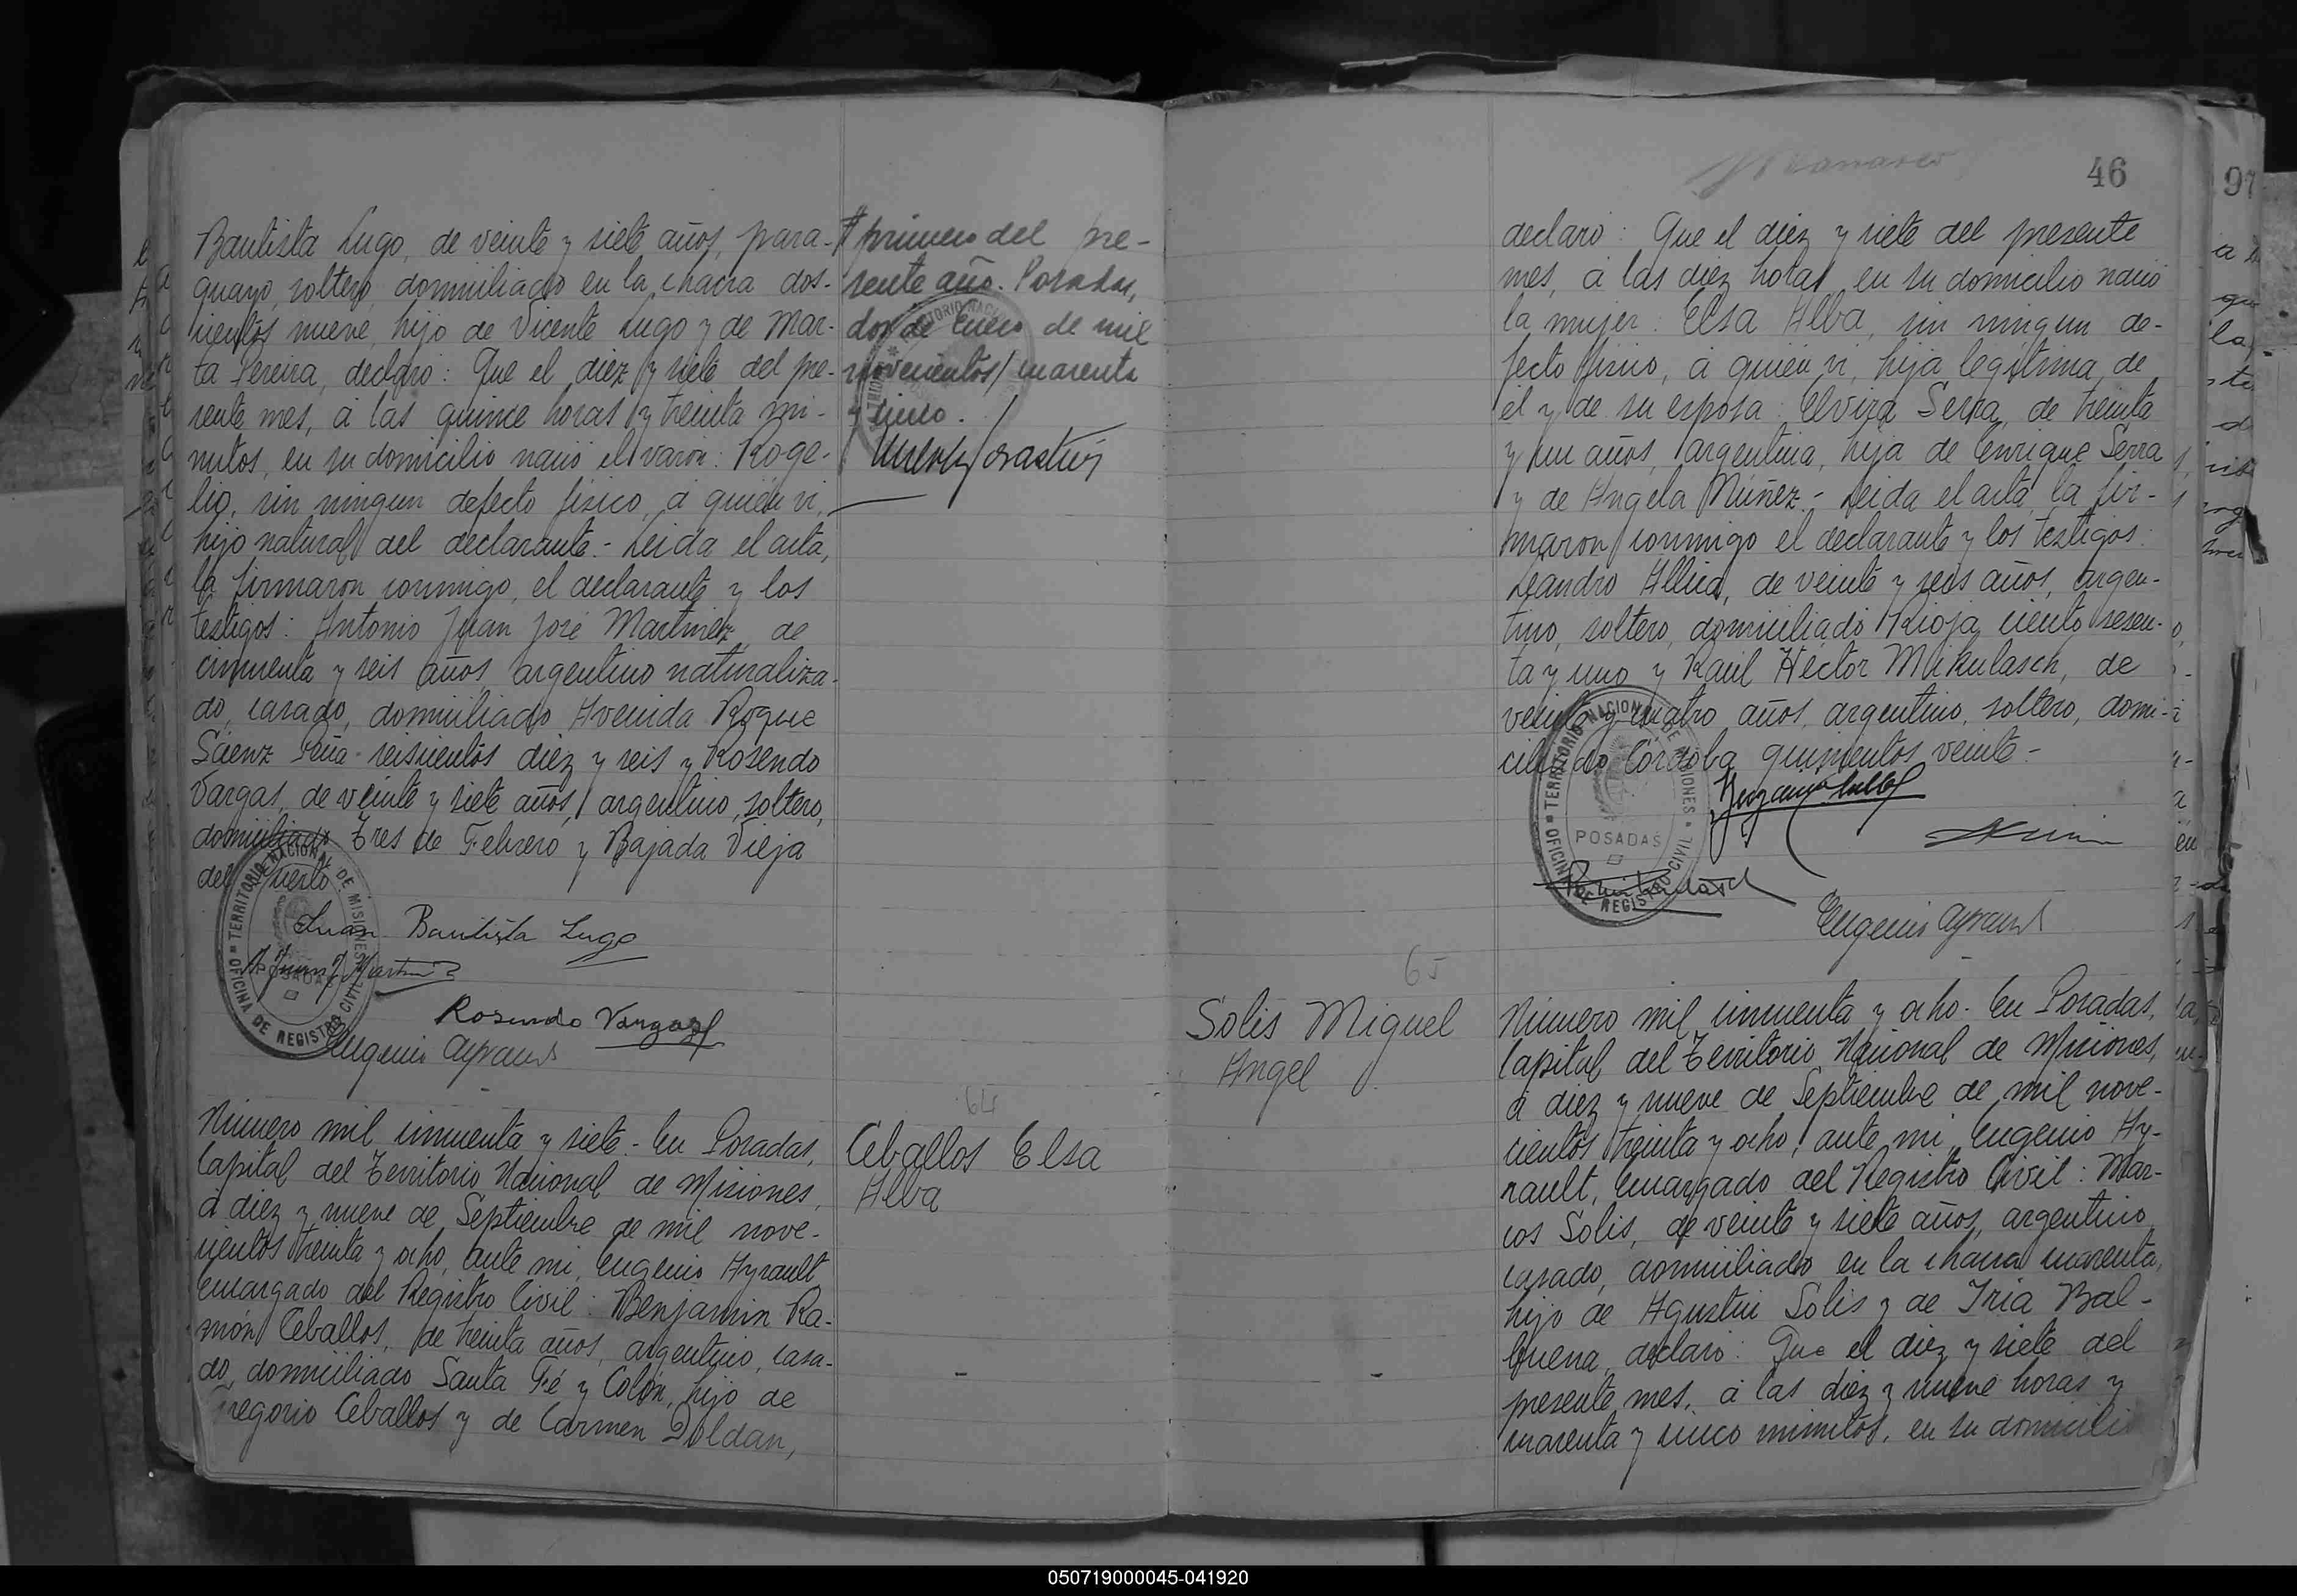 Bautista Lugo, de veinte y siete años, para-
guayo, soltero, domiciliado en la chacra dos-
cientos nueve, hijo de Vicente Lugo y de Mar-
ta Pereira, declaró: Que el diez y siete del pre-
sente mes, á las quince horas y treinta mi-
nutos, en su domicilio nació el varon: Roge-
lio, sin ningun defecto físico, á quién vi,
hijo natural del declarante.- Leida el acta,
la firmaron conmigo, el declarante y los
testigos: Antonio Juan José Martinez, de
cincuenta y seis años, argentino naturaliza-
do, casado, domiciliado Avenida Roque
Sáenz Peña seiscientos diez y seis y Rosendo
Vargas, de veinte y siete años, argentino, soltero,
domiciliado Tres de Febrero y Bajada Vieja
del Puerto
Juan Bautista Lugo
A Juan J Martinez
Rosendo Vargas
Eugenio Ayrault
TERRITORIO NACIONAL DE MISIONES
POSADAS
OFICINA DE REGISTRO CIVIL
Número mil cincuenta y siete.- En Posadas,
Capital del Territorio Nacional de Misiones,
á diez y nueve de Septiembre de mil nove-
cientos treinta y ocho, ante mi, Eugenio Ayrault
Encargado del Registro Civil: Benjamin Ra-
món Ceballos, de treinta años, argentino, casa-
do, domiciliado Santa Fé y Colón, hijo de
Gregorio Ceballos y de Carmen Doldan,
# primero del pre-
sente año. Posadas,
dos de Enero de mil
novecientos cuarenta
y cinco.
64
Ceballos Elsa
Alba
46
97
declaró: Que el diez y siete del presente
mes, á las diez horas en su domicilio nació
la mujer: Elsa Alba, sin ningun de-
fecto físico, á quién vi, hija legítima de
él y de su esposa: Elvira Serra, de treinta
y un años, argentina, hija de Enrique Serra
y de Angela Múñez.- Leida el acta, la fir-
maron conmigo el declarante y los testigos:
Leandro Allica, de veinte y seis años, argen-
tino, soltero, domiciliado Rioja ciento sesen-
ta y uno y Raúl Héctor Mikulasch, de
veinte y cuatro años, argentino, soltero, domi-
ciliado Córdoba quinientos veinte-
TERRITORIO NACIONAL DE MISIONES
POSADAS
OFICINA DE REGISTRO CIVIL
Eugenio Ayrault
65
Solis Miguel
Angel
Número mil cincuenta y ocho.- En Posadas,
Capital del Territorio Nacional de Misiones,
á diez y nueve de Septiembre de mil nove-
cientos treinta y ocho, ante mi, Eugenio Ay-
rault, Encargado del Registro Civil: Mar-
cos Solis, de veinte y siete años, argentino
casado, domiciliado en la chacra cuarenta,
hijo de Agustin Solis y de Iria Bal-
buena, declaró: Que el diez y siete del
presente mes, á las diez y nueve horas y
cuarenta y cinco minutos, en su domicilio
050719000045-041920